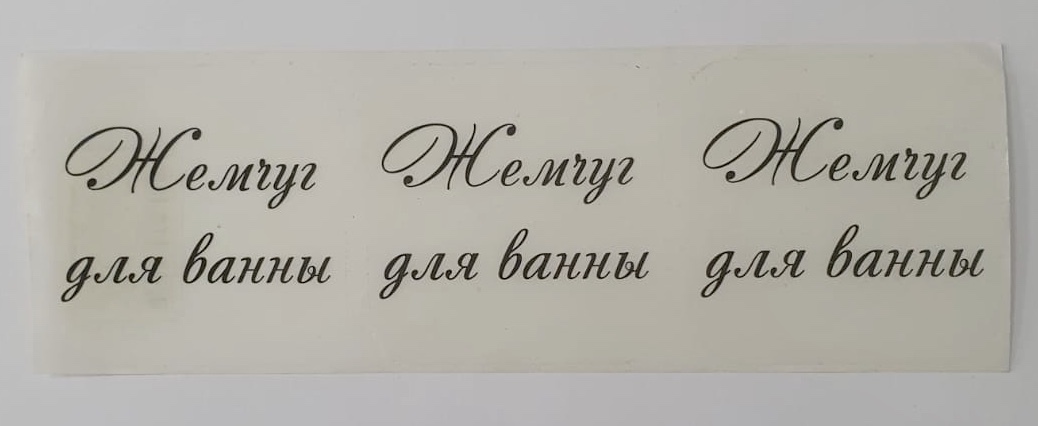 Жемчуг Жемчуг Жемчуг
для ванны для ванны для ванны